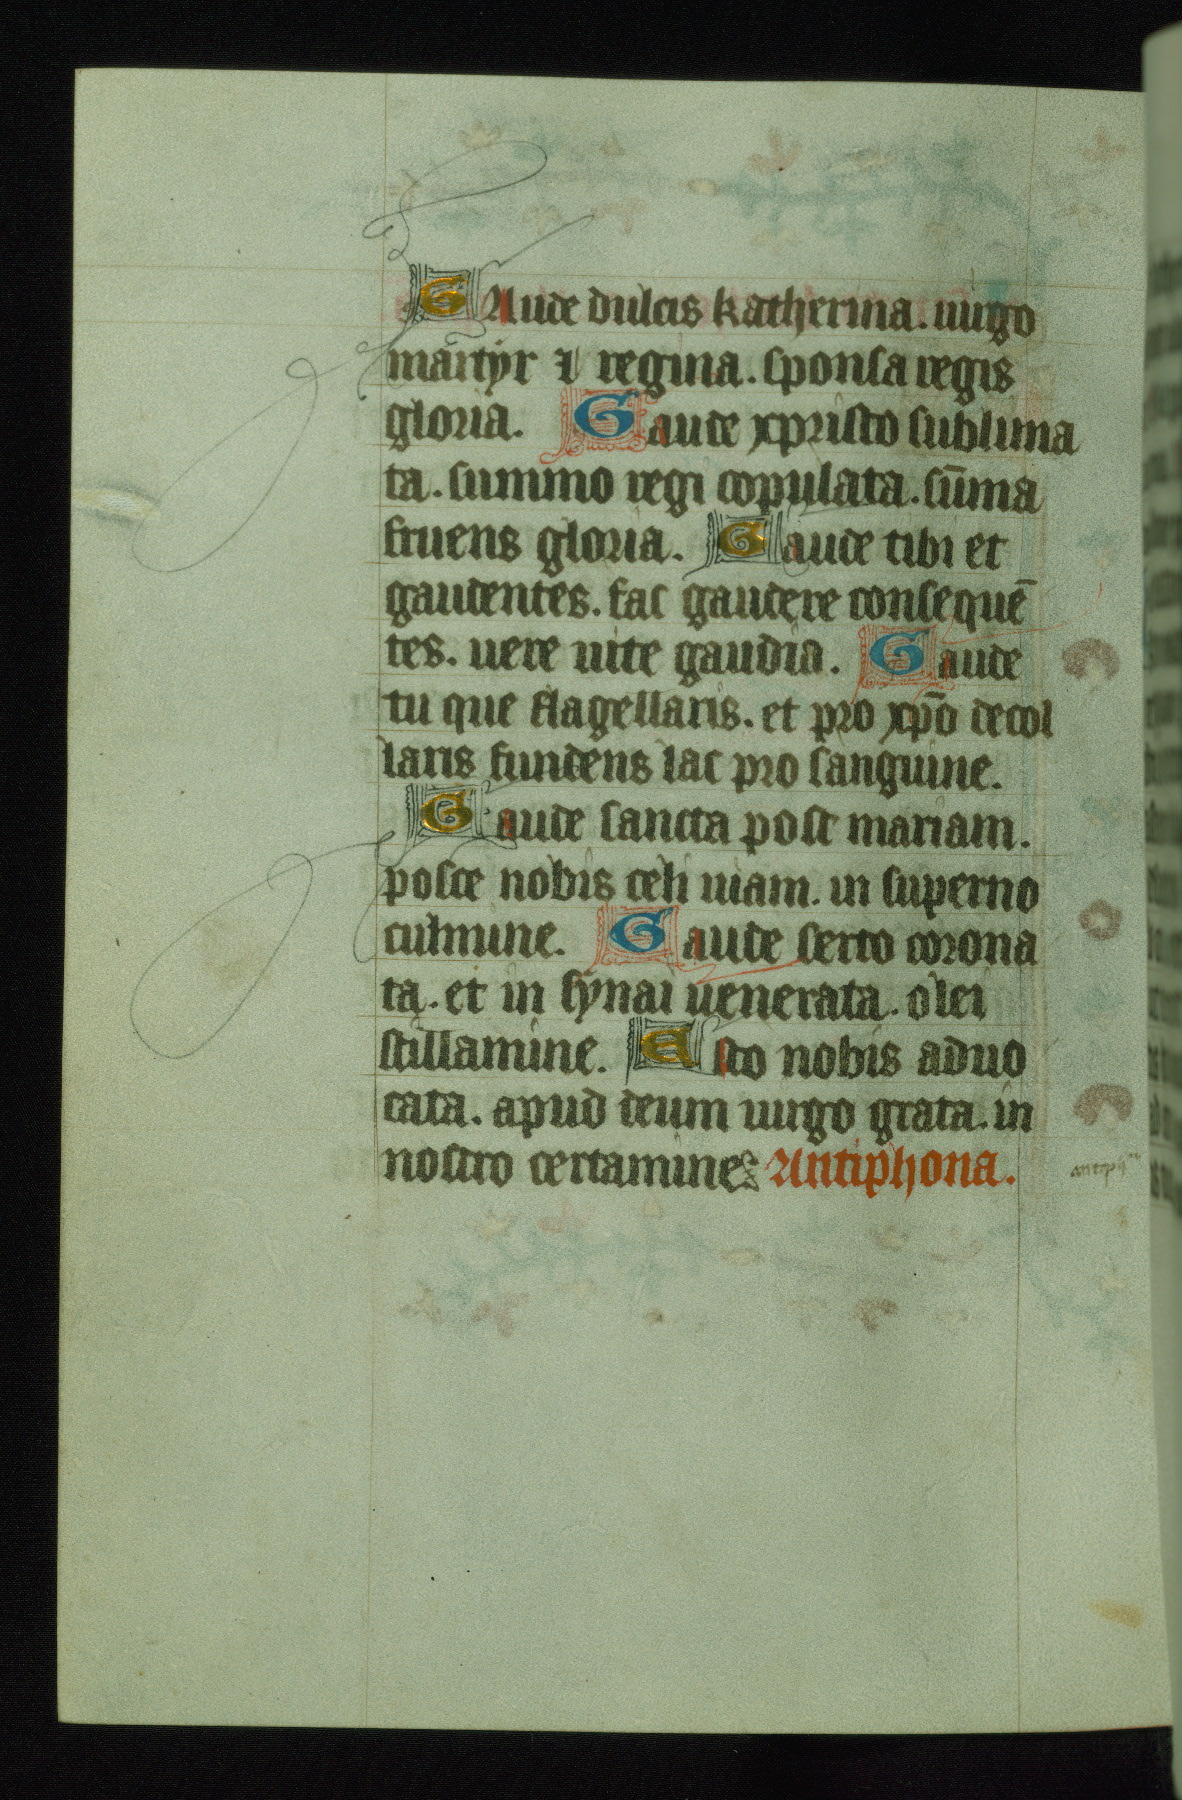 GAude dulcis katherina. uirgo
martyr ⁊ regina. sponsa regis
gloria. Gaude xpristo sublima
ta. summo regi copulata. sūma
fruens gloria. Gaude tibi et
gaudentes. fac gaudere consequē
tes. uere uite gaudia. Gaude
tu que flagellaris. et pro xp̄o decol
laris fundens lac pro sanguine.
Gaude sancta post mariam.
posce nobis celi uiam. in superno
culmine. Gaude serto corona
ta. et in synai uenerata. olei
stillamine. Esto nobis aduo
cata. apud deum uirgo grata. in
nostro certamine Antiphona.